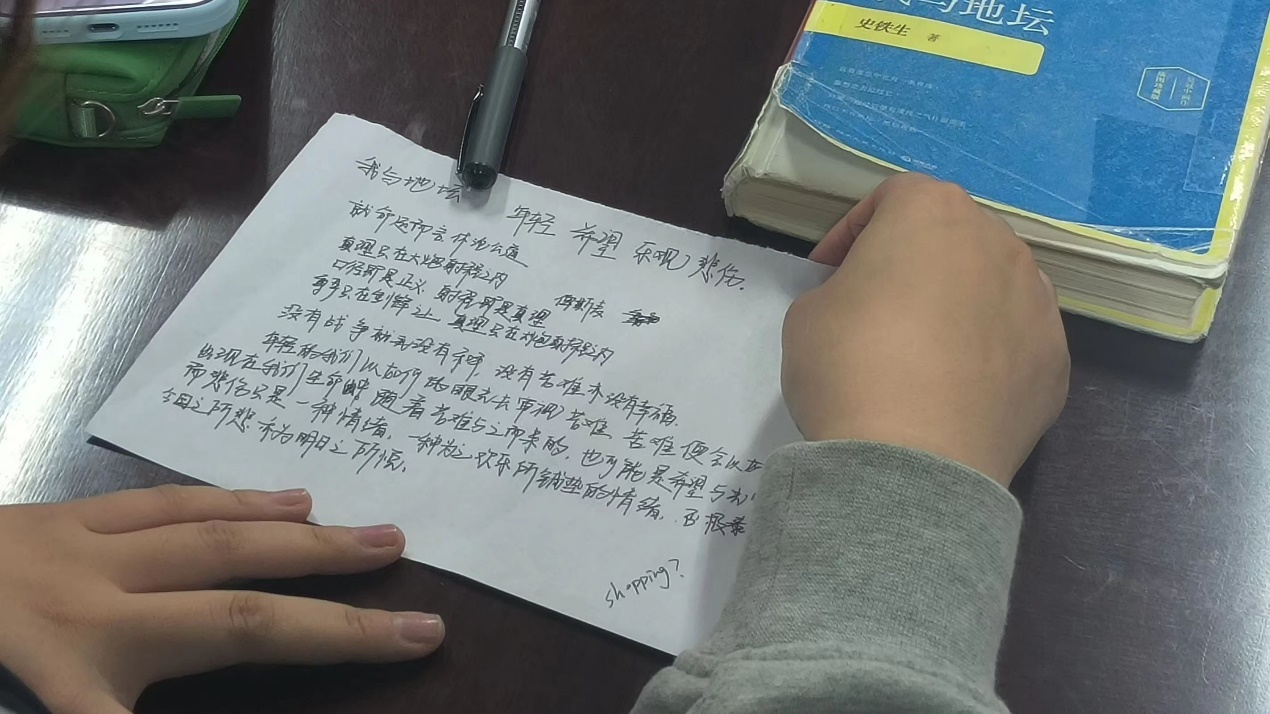 我与地坛
史铁生 著
我与地坛
年轻 希望 乐观 悲伤.
就命运而言休论公道
真理只在大炮射程之内
口径即是正义，射程即是真理 俾斯麦
尊严只在剑锋之上 真理只在大炮射程之内
没有战争就无没有和平，没有苦难亦没有幸福.
年轻的我们以如何的眼光去审视苦难，苦难便会以
出现在我们生命中 随着苦难与之而来的，也可能是希望与光
而悲伤只是一种情绪，一种为之欢乐所铺垫的情绪，
今日之所悲 亦为明日之所恨.
shopping?